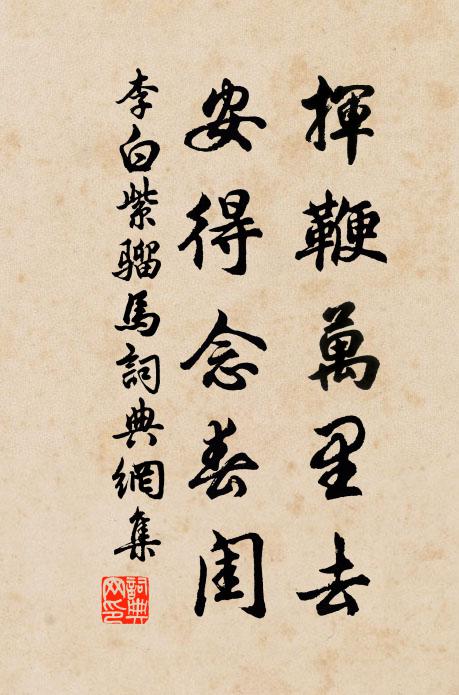 揮鞭萬里去
安得念春閨
李白紫騮馬詞典網集
詞典網印